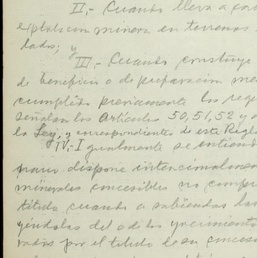 II,- Cuando lleva a ca
explotación minera en terrenos
dados; y
III.- Cuando construye
de beneficio o de preparación me
cumplido previamente los req
señalan los artículos 50, 51, 52 y
la Ley, y correspondientes de este Regla
IV.- Igualmente se entiend
para dispone intencionalmen
minerales concesibles no compr
título cuando a sabiendas
giéndolos del o de los yacimiento
rados por el título